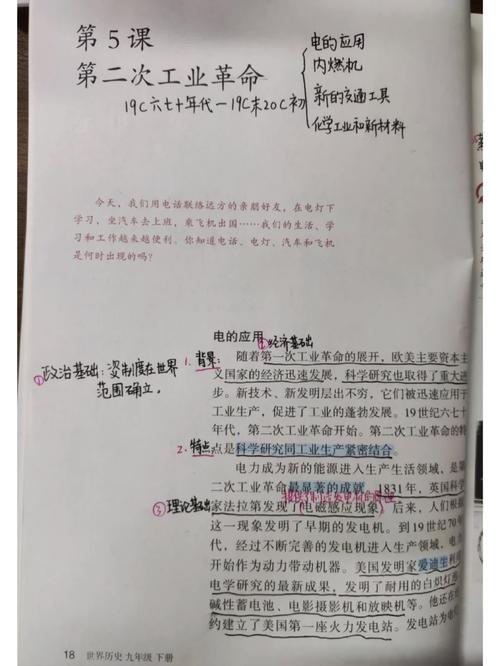 第5课
第二次工业革命
19C六七十年代—19C末20C初
电的应用
内燃机
新的交通工具
化学工业和新材料
今天，我们用电话联络远方的亲朋好友，在电灯下
学习，坐汽车去上班，乘飞机出国……我们的生活、学
习和工作越来越便利。你知道电话、电灯、汽车和飞机
是何时出现的吗？
电的应用
②经济基础
①政治基础：资制度在世界
范围确立。
1. 背景：
随着第一次工业革命的展开，欧美主要资本主
义国家的经济迅速发展，科学研究也取得了重大进
步。新技术、新发明层出不穷，它们被迅速应用于
工业生产，促进了工业的蓬勃发展。19世纪六七十
年代，第二次工业革命开始。第二次工业革命的特
2. 特点
点是科学研究同工业生产紧密结合。
电力成为新的能源进入生产生活领域，是第
二次工业革命最显著的成就。1831年，英国科学
③理论基础
家法拉第发现了电磁感应现象。后来，人们根据
这一现象发明了早期的发电机。到19世纪70年
代，经过不断完善的发电机进入生产领域，电力
开始作为动力带动机器。美国发明家爱迪生利用
电学研究的最新成果，发明了耐用的白炽灯泡、
碱性蓄电池、电影摄影机和放映机等。他还在纽
约建立了美国第一座火力发电站。发电站为电
18 世界历史 九年级 下册